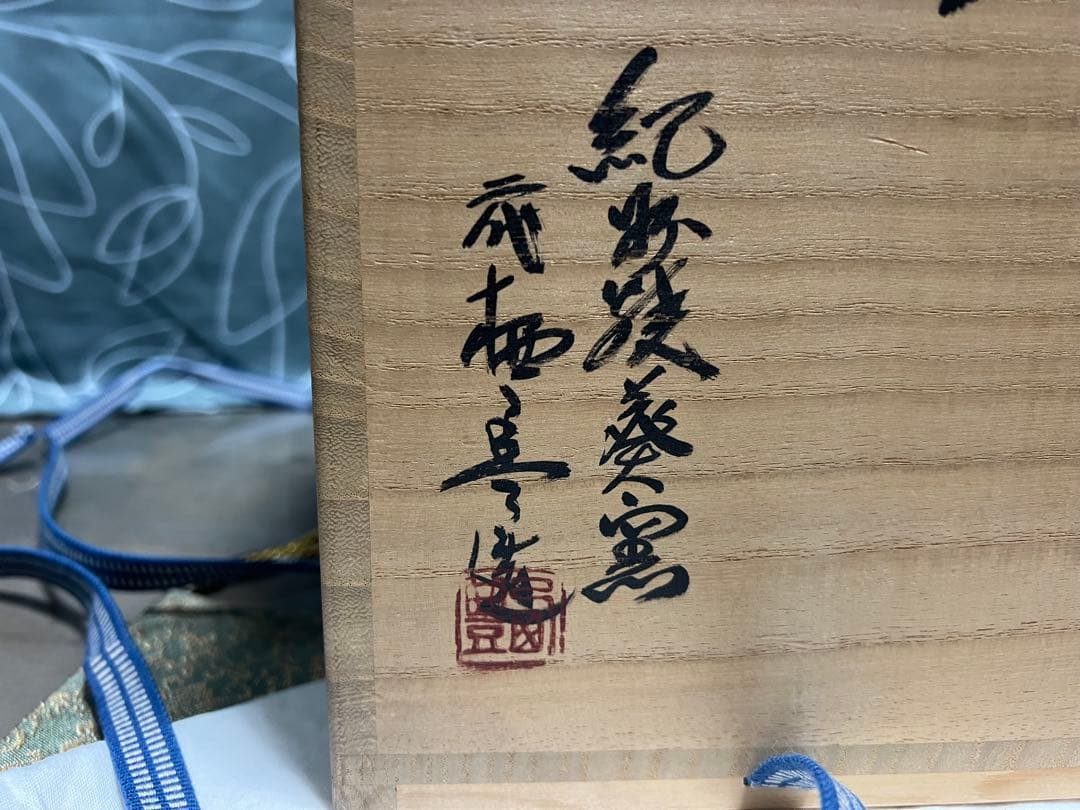 紀州焼葵窯
二代栖豊造